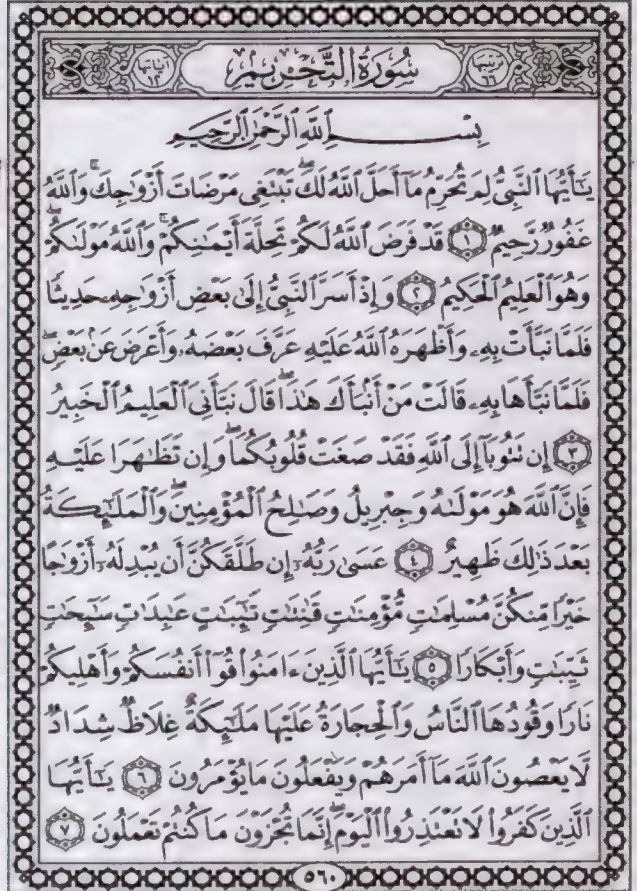 ترتيبها ٦٦ سُورَةُ التَّحْرِيمِ آياتها ١٢
بِسْمِ ٱللَّهِ ٱلرَّحْمَٰنِ ٱلرَّحِيمِ
يَٰٓأَيُّهَا ٱلنَّبِىُّ لِمَ تُحَرِّمُ مَآ أَحَلَّ ٱللَّهُ لَكَ ۖ تَبْتَغِى مَرْضَاتَ أَزْوَٰجِكَ ۚ وَٱللَّهُ
غَفُورٌ رَّحِيمٌ ﴿١﴾ قَدْ فَرَضَ ٱللَّهُ لَكُمْ تَحِلَّةَ أَيْمَٰنِكُمْ ۚ وَٱللَّهُ مَوْلَىٰكُمْ ۖ
وَهُوَ ٱلْعَلِيمُ ٱلْحَكِيمُ ﴿٢﴾ وَإِذْ أَسَرَّ ٱلنَّبِىُّ إِلَىٰ بَعْضِ أَزْوَٰجِهِۦ حَدِيثًا
فَلَمَّا نَبَّأَتْ بِهِۦ وَأَظْهَرَهُ ٱللَّهُ عَلَيْهِ عَرَّفَ بَعْضَهُۥ وَأَعْرَضَ عَنۢ بَعْضٍ ۖ
فَلَمَّا نَبَّأَهَا بِهِۦ قَالَتْ مَنْ أَنۢبَأَكَ هَٰذَا ۖ قَالَ نَبَّأَنِىَ ٱلْعَلِيمُ ٱلْخَبِيرُ
﴿٣﴾ إِن تَتُوبَآ إِلَى ٱللَّهِ فَقَدْ صَغَتْ قُلُوبُكُمَا ۖ وَإِن تَظَٰهَرَا عَلَيْهِ
فَإِنَّ ٱللَّهَ هُوَ مَوْلَىٰهُ وَجِبْرِيلُ وَصَٰلِحُ ٱلْمُؤْمِنِينَ ۖ وَٱلْمَلَٰٓئِكَةُ
بَعْدَ ذَٰلِكَ ظَهِيرٌ ﴿٤﴾ عَسَىٰ رَبُّهُۥٓ إِن طَلَّقَكُنَّ أَن يُبْدِلَهُۥٓ أَزْوَٰجًا
خَيْرًا مِّنكُنَّ مُسْلِمَٰتٍ مُّؤْمِنَٰتٍ قَٰنِتَٰتٍ تَٰٓئِبَٰتٍ عَٰبِدَٰتٍ سَٰٓئِحَٰتٍ
ثَيِّبَٰتٍ وَأَبْكَارًا ﴿٥﴾ يَٰٓأَيُّهَا ٱلَّذِينَ ءَامَنُوا۟ قُوٓا۟ أَنفُسَكُمْ وَأَهْلِيكُمْ
نَارًا وَقُودُهَا ٱلنَّاسُ وَٱلْحِجَارَةُ عَلَيْهَا مَلَٰٓئِكَةٌ غِلَاظٌ شِدَادٌ
لَّا يَعْصُونَ ٱللَّهَ مَآ أَمَرَهُمْ وَيَفْعَلُونَ مَا يُؤْمَرُونَ ﴿٦﴾ يَٰٓأَيُّهَا
ٱلَّذِينَ كَفَرُوا۟ لَا تَعْتَذِرُوا۟ ٱلْيَوْمَ ۖ إِنَّمَا تُجْزَوْنَ مَا كُنتُمْ تَعْمَلُونَ ﴿٧﴾
٥٦٠